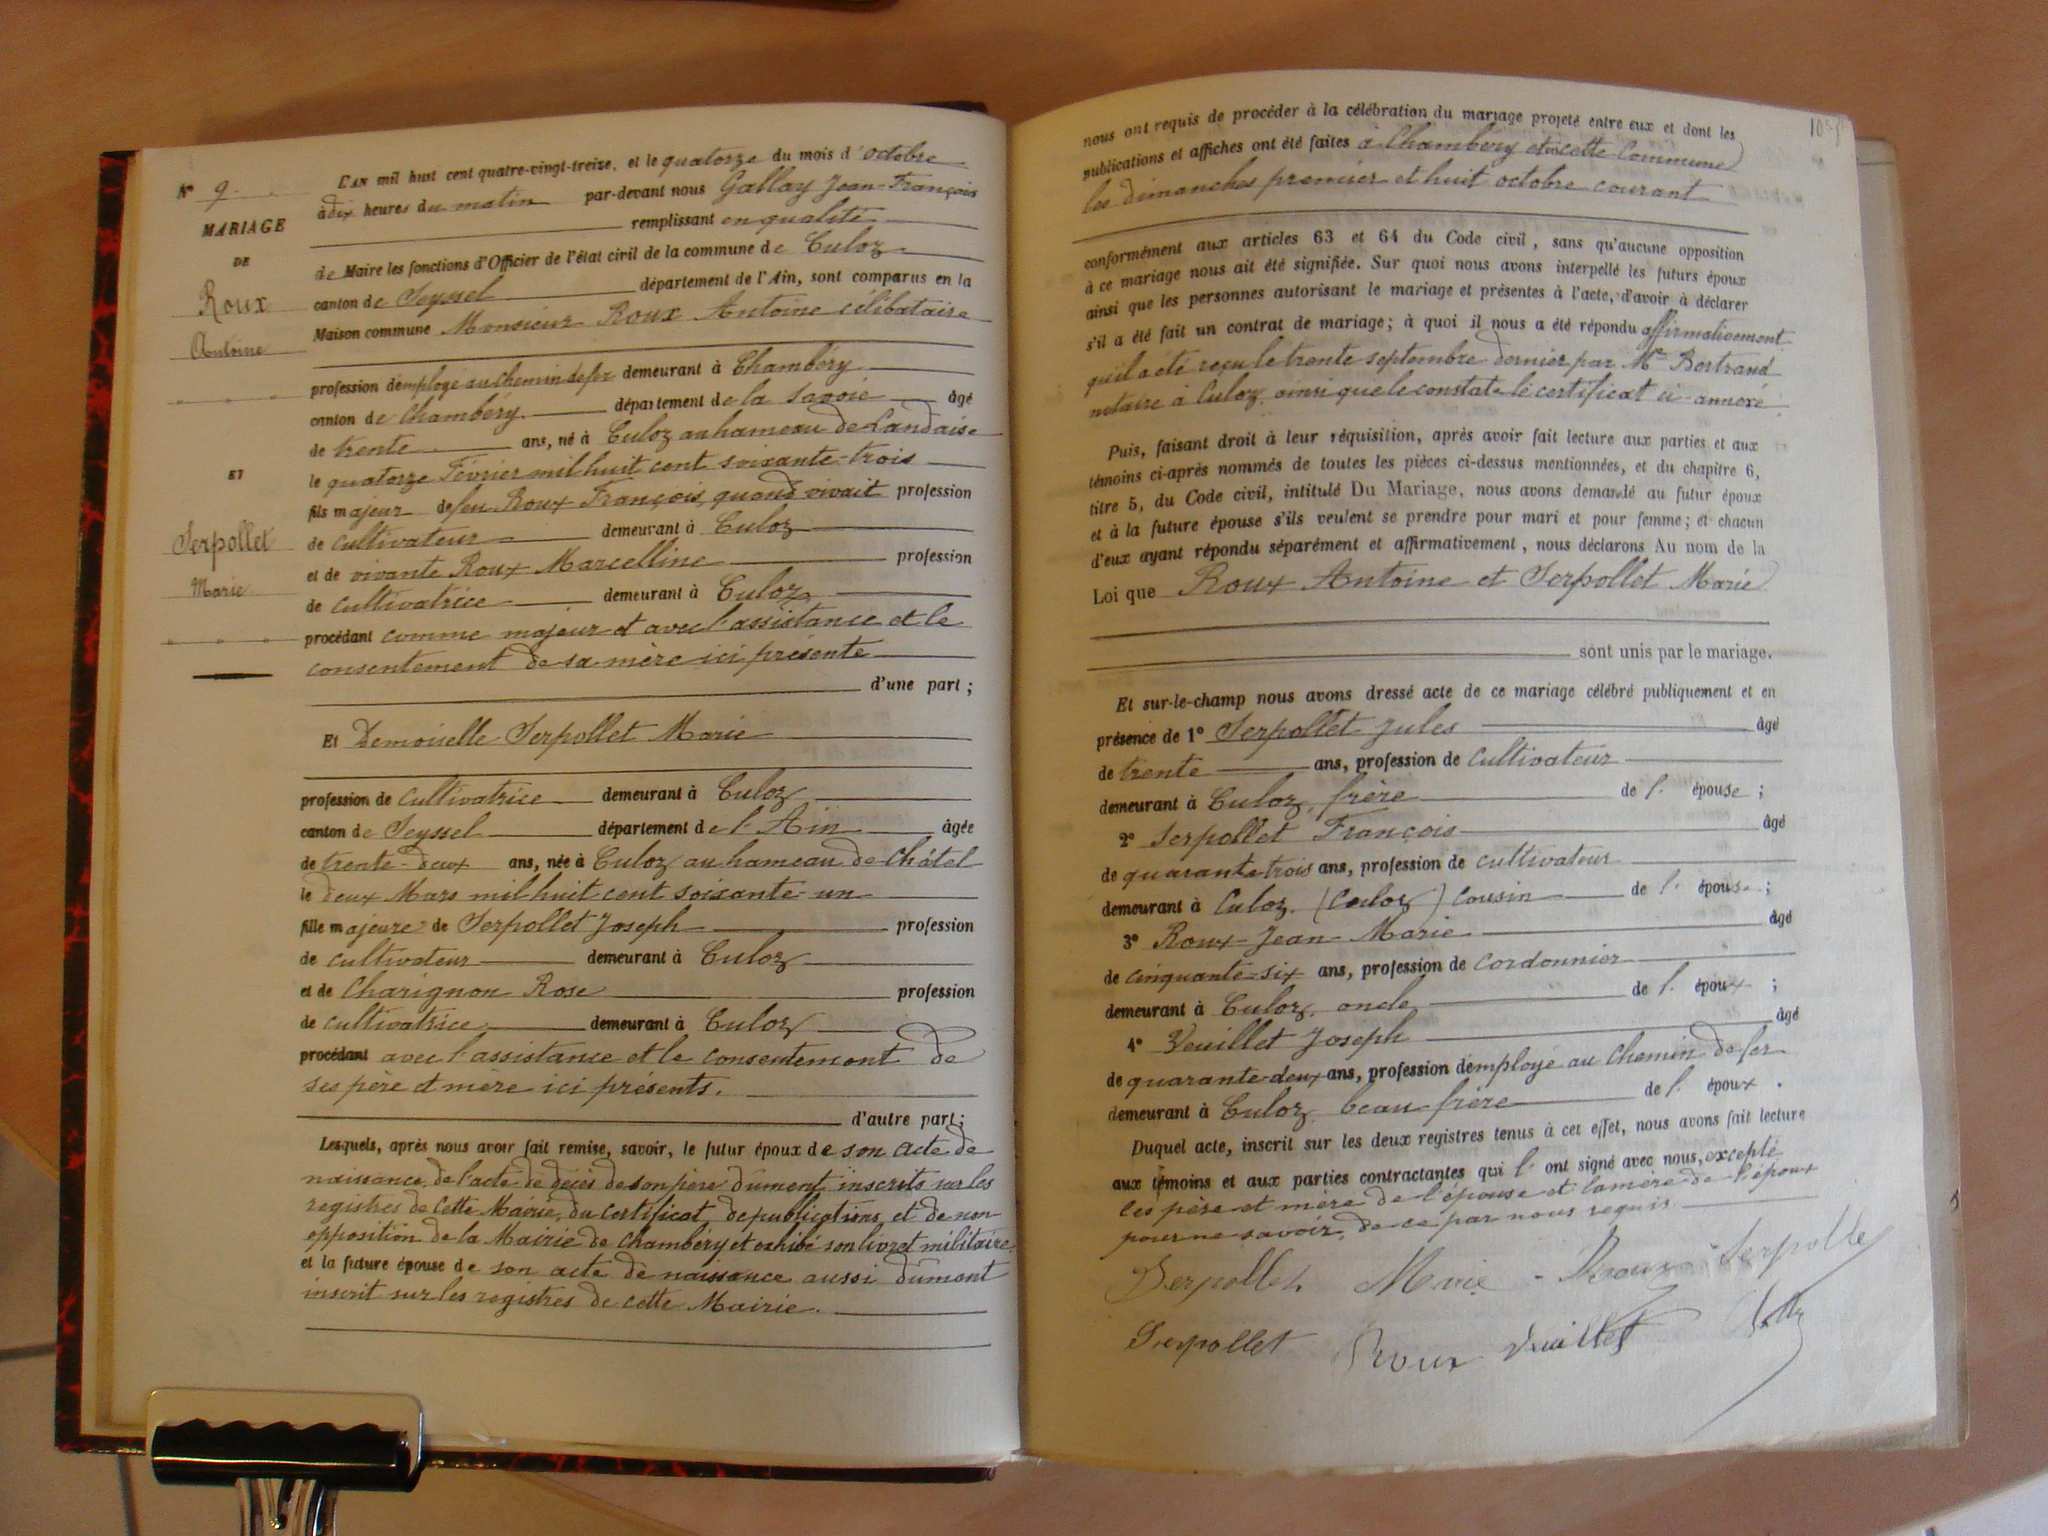 N° 9
MARIAGE
DE
Roux
Antoine
ET
Serpollet
Marie
L'AN mil huit cent quatre-vingt-treize, et le quatorze du mois d'octobre
à dix heures du matin par-devant nous Gallay Jean-François
remplissant en qualité
de Maire les fonctions d'Officier de l'état civil de la commune de Culoz
canton de Seyssel département de l'Ain, sont comparus en la
Maison commune Monsieur Roux Antoine célibataire
profession d'employé au chemin de fer demeurant à Chambéry
canton de Chambéry département de la Savoie âgé
de trente ans, né à Culoz au hameau de Landaise
le quatorze Février mil huit cent soixante-trois
fils majeur de feu Roux François, quand vivait profession
de cultivateur demeurant à Culoz
et de vivante Roux Marcelline profession
de cultivatrice demeurant à Culoz
procédant comme majeur et avec l'assistance et le
consentement de sa mère ici présente
d'une part ;
Et Demoiselle Serpollet Marie
profession de cultivatrice demeurant à Culoz
canton de Seyssel département de l'Ain âgée
de trente-deux ans, née à Culoz au hameau de Châtel
le deux Mars mil huit cent soixante-un
fille majeure de Serpollet Joseph profession
de cultivateur demeurant à Culoz
et de Charignon Rose profession
de cultivatrice demeurant à Culoz
procédant avec l'assistance et le consentement de
ses père et mère ici présents.
d'autre part ;
Lesquels, après nous avoir fait remise, savoir, le futur époux de son acte de
naissance, de l'acte de décès de son père dûment inscrits sur les
registres de cette Mairie, du certificat de publications et de non
opposition de la Mairie de Chambéry et exhibé son livret militaire
et la future épouse de son acte de naissance aussi dûment
inscrit sur les registres de cette Mairie.
nous ont requis de procéder à la célébration du mariage projeté entre eux et dont les
publications et affiches ont été faites à Chambéry et en cette Commune
les dimanches premier et huit octobre courant
conformément aux articles 63 et 64 du Code civil, sans qu'aucune opposition
à ce mariage nous ait été signifiée. Sur quoi nous avons interpellé les futurs époux
ainsi que les personnes autorisant le mariage et présentes à l'acte, d'avoir à déclarer
s'il a été fait un contrat de mariage ; à quoi il nous a été répondu affirmativement
qu'il a été reçu le trente septembre dernier par Me Bertrand
notaire à Culoz, ainsi que le constate le certificat ci-annexé.
Puis, faisant droit à leur réquisition, après avoir fait lecture aux parties et aux
témoins ci-après nommés de toutes les pièces ci-dessus mentionnées, et du chapitre 6,
titre 5, du Code civil, intitulé Du Mariage, nous avons demandé au futur époux
et à la future épouse s'ils veulent se prendre pour mari et pour femme ; et chacun
d'eux ayant répondu séparément et affirmativement, nous déclarons Au nom de la
Loi que Roux Antoine et Serpollet Marie
sont unis par le mariage.
Et sur-le-champ nous avons dressé acte de ce mariage célébré publiquement et en
présence de 1° Serpollet Jules âgé
de trente ans, profession de cultivateur
demeurant à Culoz, frère de l'épouse ;
2° Serpollet François âgé
de quarante trois ans, profession de cultivateur
demeurant à Culoz. (Culoz) cousin de l'épouse ;
3° Roux Jean Marie âgé
de cinquante-six ans, profession de cordonnier
demeurant à Culoz, oncle de l'époux ;
4° Veuillet Joseph âgé
de quarante-deux ans, profession d'employé au chemin de fer
demeurant à Culoz beau frère de l'époux.
Duquel acte, inscrit sur les deux registres tenus à cet effet, nous avons fait lecture
aux témoins et aux parties contractantes qui l'ont signé avec nous, excepté
les père et mère de l'épouse et la mère de l'époux
pour ne savoir, de ce par nous requis.
Serpollet Marie - Roux - Serpollet
Serpollet Roux Veuillet